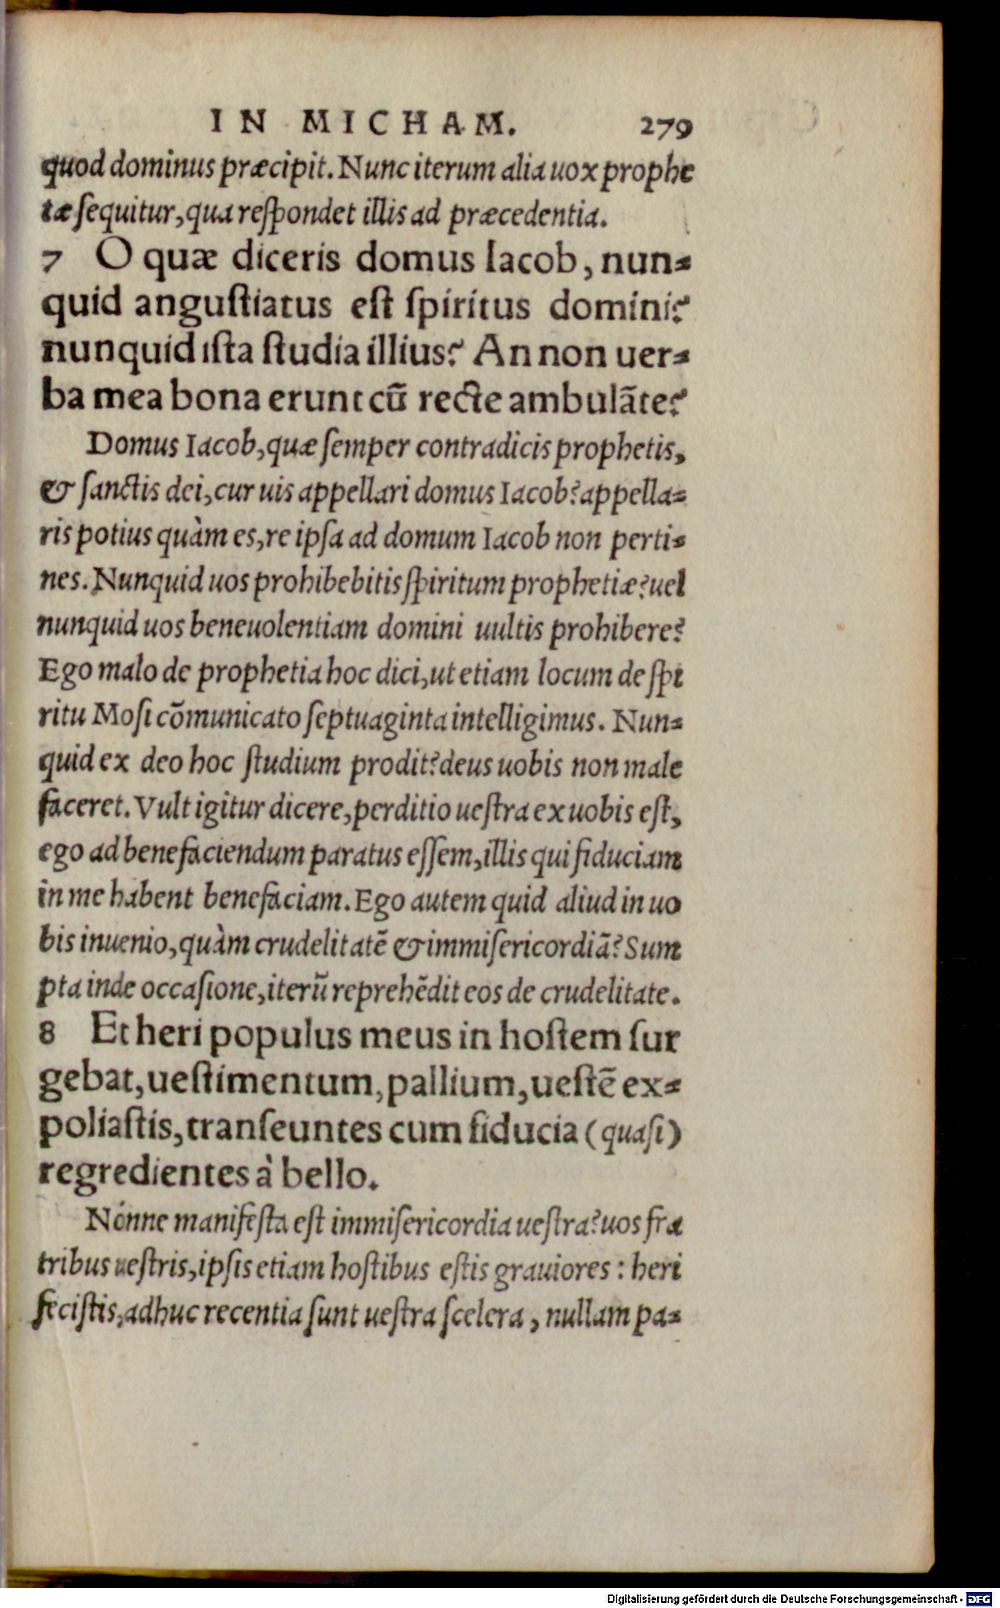 IN MICHAM. 279
quod dominus præcipit. Nunc iterum alia uox prophe
tæ sequitur, qua respondet illis ad præcedentia.
7 O quæ diceris domus Iacob, nun-
quid angustiatus est spiritus domini?
nunquid ista studia illius? An non uer-
ba mea bona erunt cū recte ambulāte?
Domus Iacob, quæ semper contradicis prophetis,
& sanctis dei, cur uis appellari domus Iacob? appella-
ris potius quàm es, re ipsa ad domum Iacob non perti-
nes. Nunquid uos prohibebitis spiritum prophetiæ? uel
nunquid uos beneuolentiam domini uultis prohibere?
Ego malo de prophetia hoc dici, ut etiam locum de spi
ritu Mosi cōmunicato septuaginta intelligimus. Nun-
quid ex deo hoc studium prodit? deus uobis non male
faceret. Vult igitur dicere, perditio uestra ex uobis est,
ego ad benefaciendum paratus essem, illis qui fiduciam
in me habent benefaciam. Ego autem quid aliud in uo
bis inuenio, quàm crudelitatē & immisericordiā? Sum
pta inde occasione, iterū reprehēdit eos de crudelitate.
8 Et heri populus meus in hostem sur
gebat, uestimentum, pallium, uestē ex-
poliastis, transeuntes cum fiducia (quasi)
regredientes à bello.
Nónne manifesta est immisericordia uestra? uos fra
tribus uestris, ipsis etiam hostibus estis grauiores: heri
fecistis, adhuc recentia sunt uestra scelera, nullam pa-
Digitalisierung gefördert durch die Deutsche Forschungsgemeinschaft - DFG